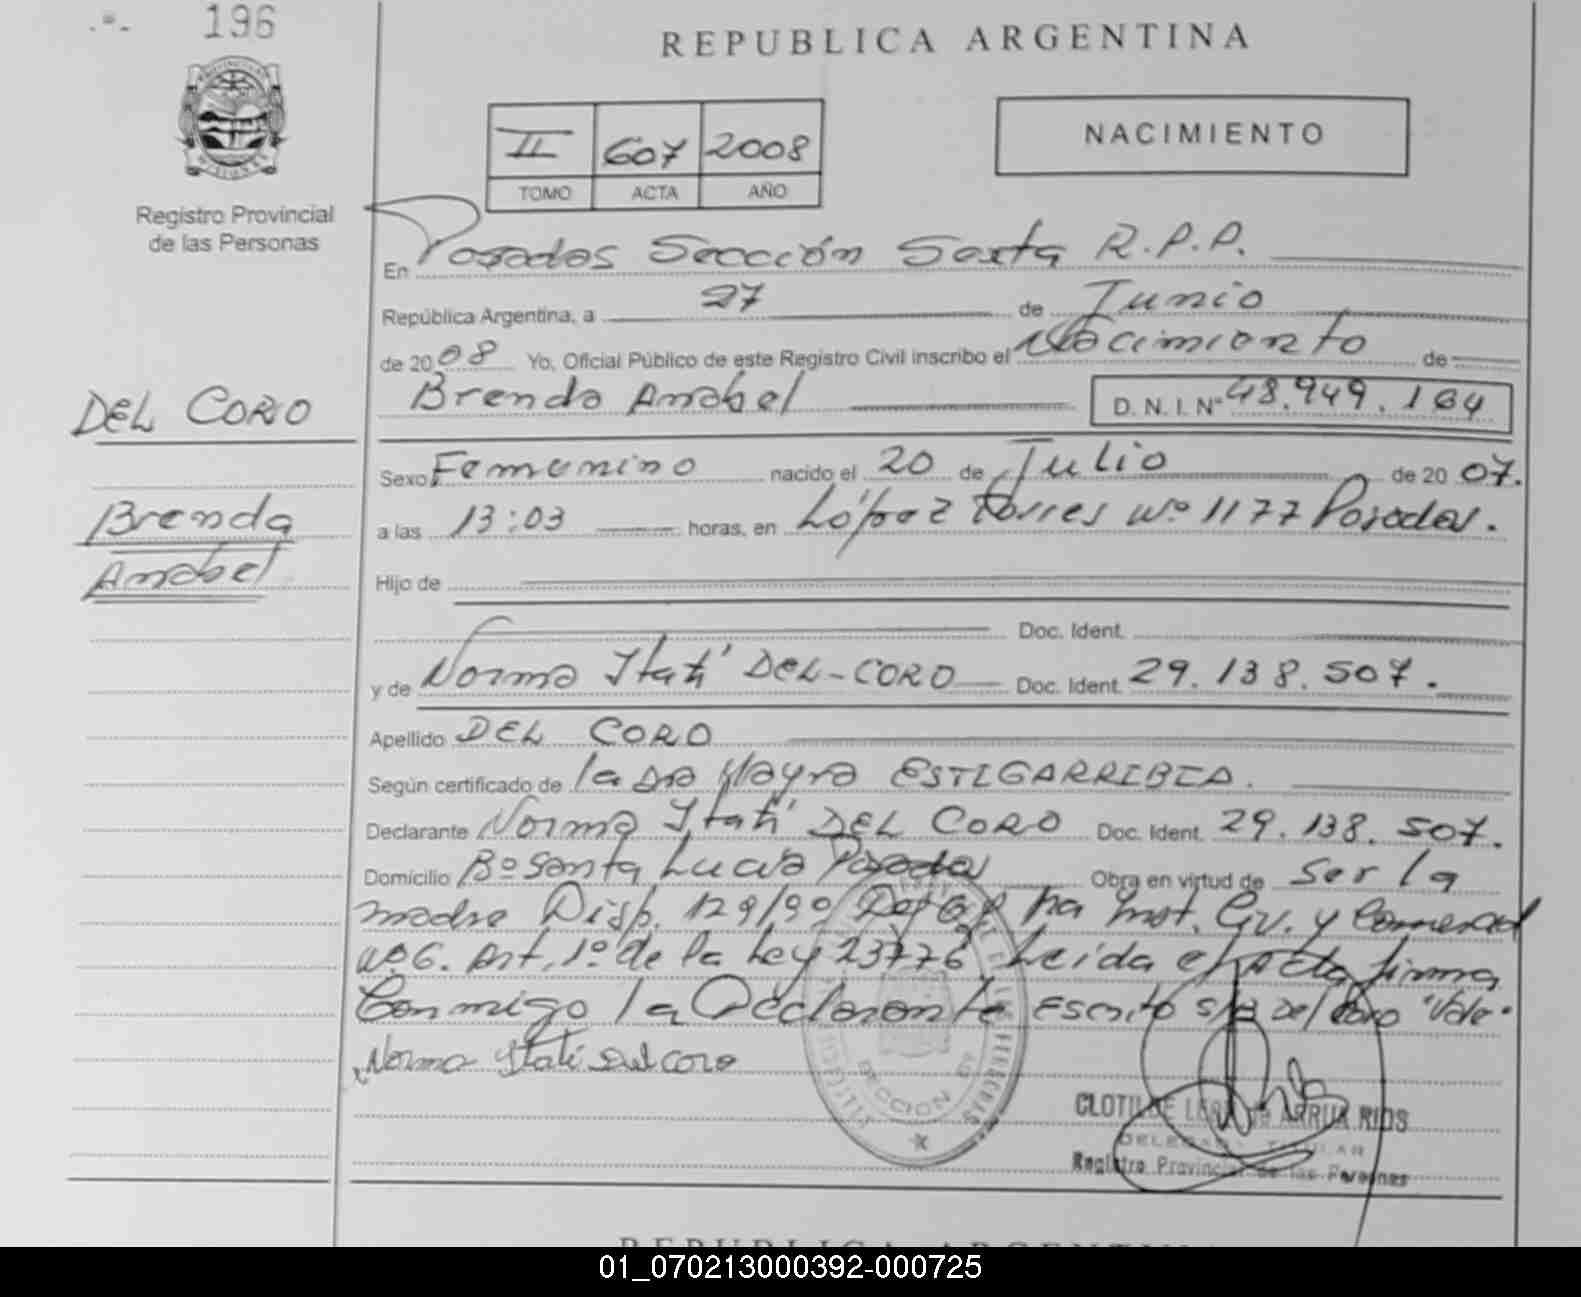 196
REPUBLICA ARGENTINA
II 607 2008
TOMO ACTA AÑO
NACIMIENTO
Registro Provincial
de las Personas
En Posadas Sección Sexta R.P.P.
República Argentina, a 27 de Junio
de 2008 Yo, Oficial Público de este Registro Civil inscribo el Nacimiento de
DEL CORO
Brenda Anabel D.N.I. Nº 48.949.164
Sexo Femenino nacido el 20 de Julio de 2007.
Brenda
Anabel
a las 13:03 horas, en López Torres Nº 1177 Posadas.
Hijo de
Doc. Ident.
y de Norma Itatí DEL-CORO Doc. Ident. 29.138.507.
Apellido DEL CORO
Según certificado de la Dra Mayra ESTIGARRIBIA.
Declarante Norma Itatí DEL CORO Doc. Ident. 29.138.507.
Domicilio Bº Santa Lucía Posadas Obra en virtud de ser la
madre Disp. 129/90 Inst. Civ. y Comercial
Nº6. Art. 1º de la Ley 23776 Leída el Acta firma
Conmigo la Declarante Escrito s/r Del Coro "Vale"
Norma Itatí Del coro
SECCION 6º
CLOTILDE ARRUA RIOS
DELEGADA TITULAR
Registro Provincial de las Personas
01_070213000392-000725